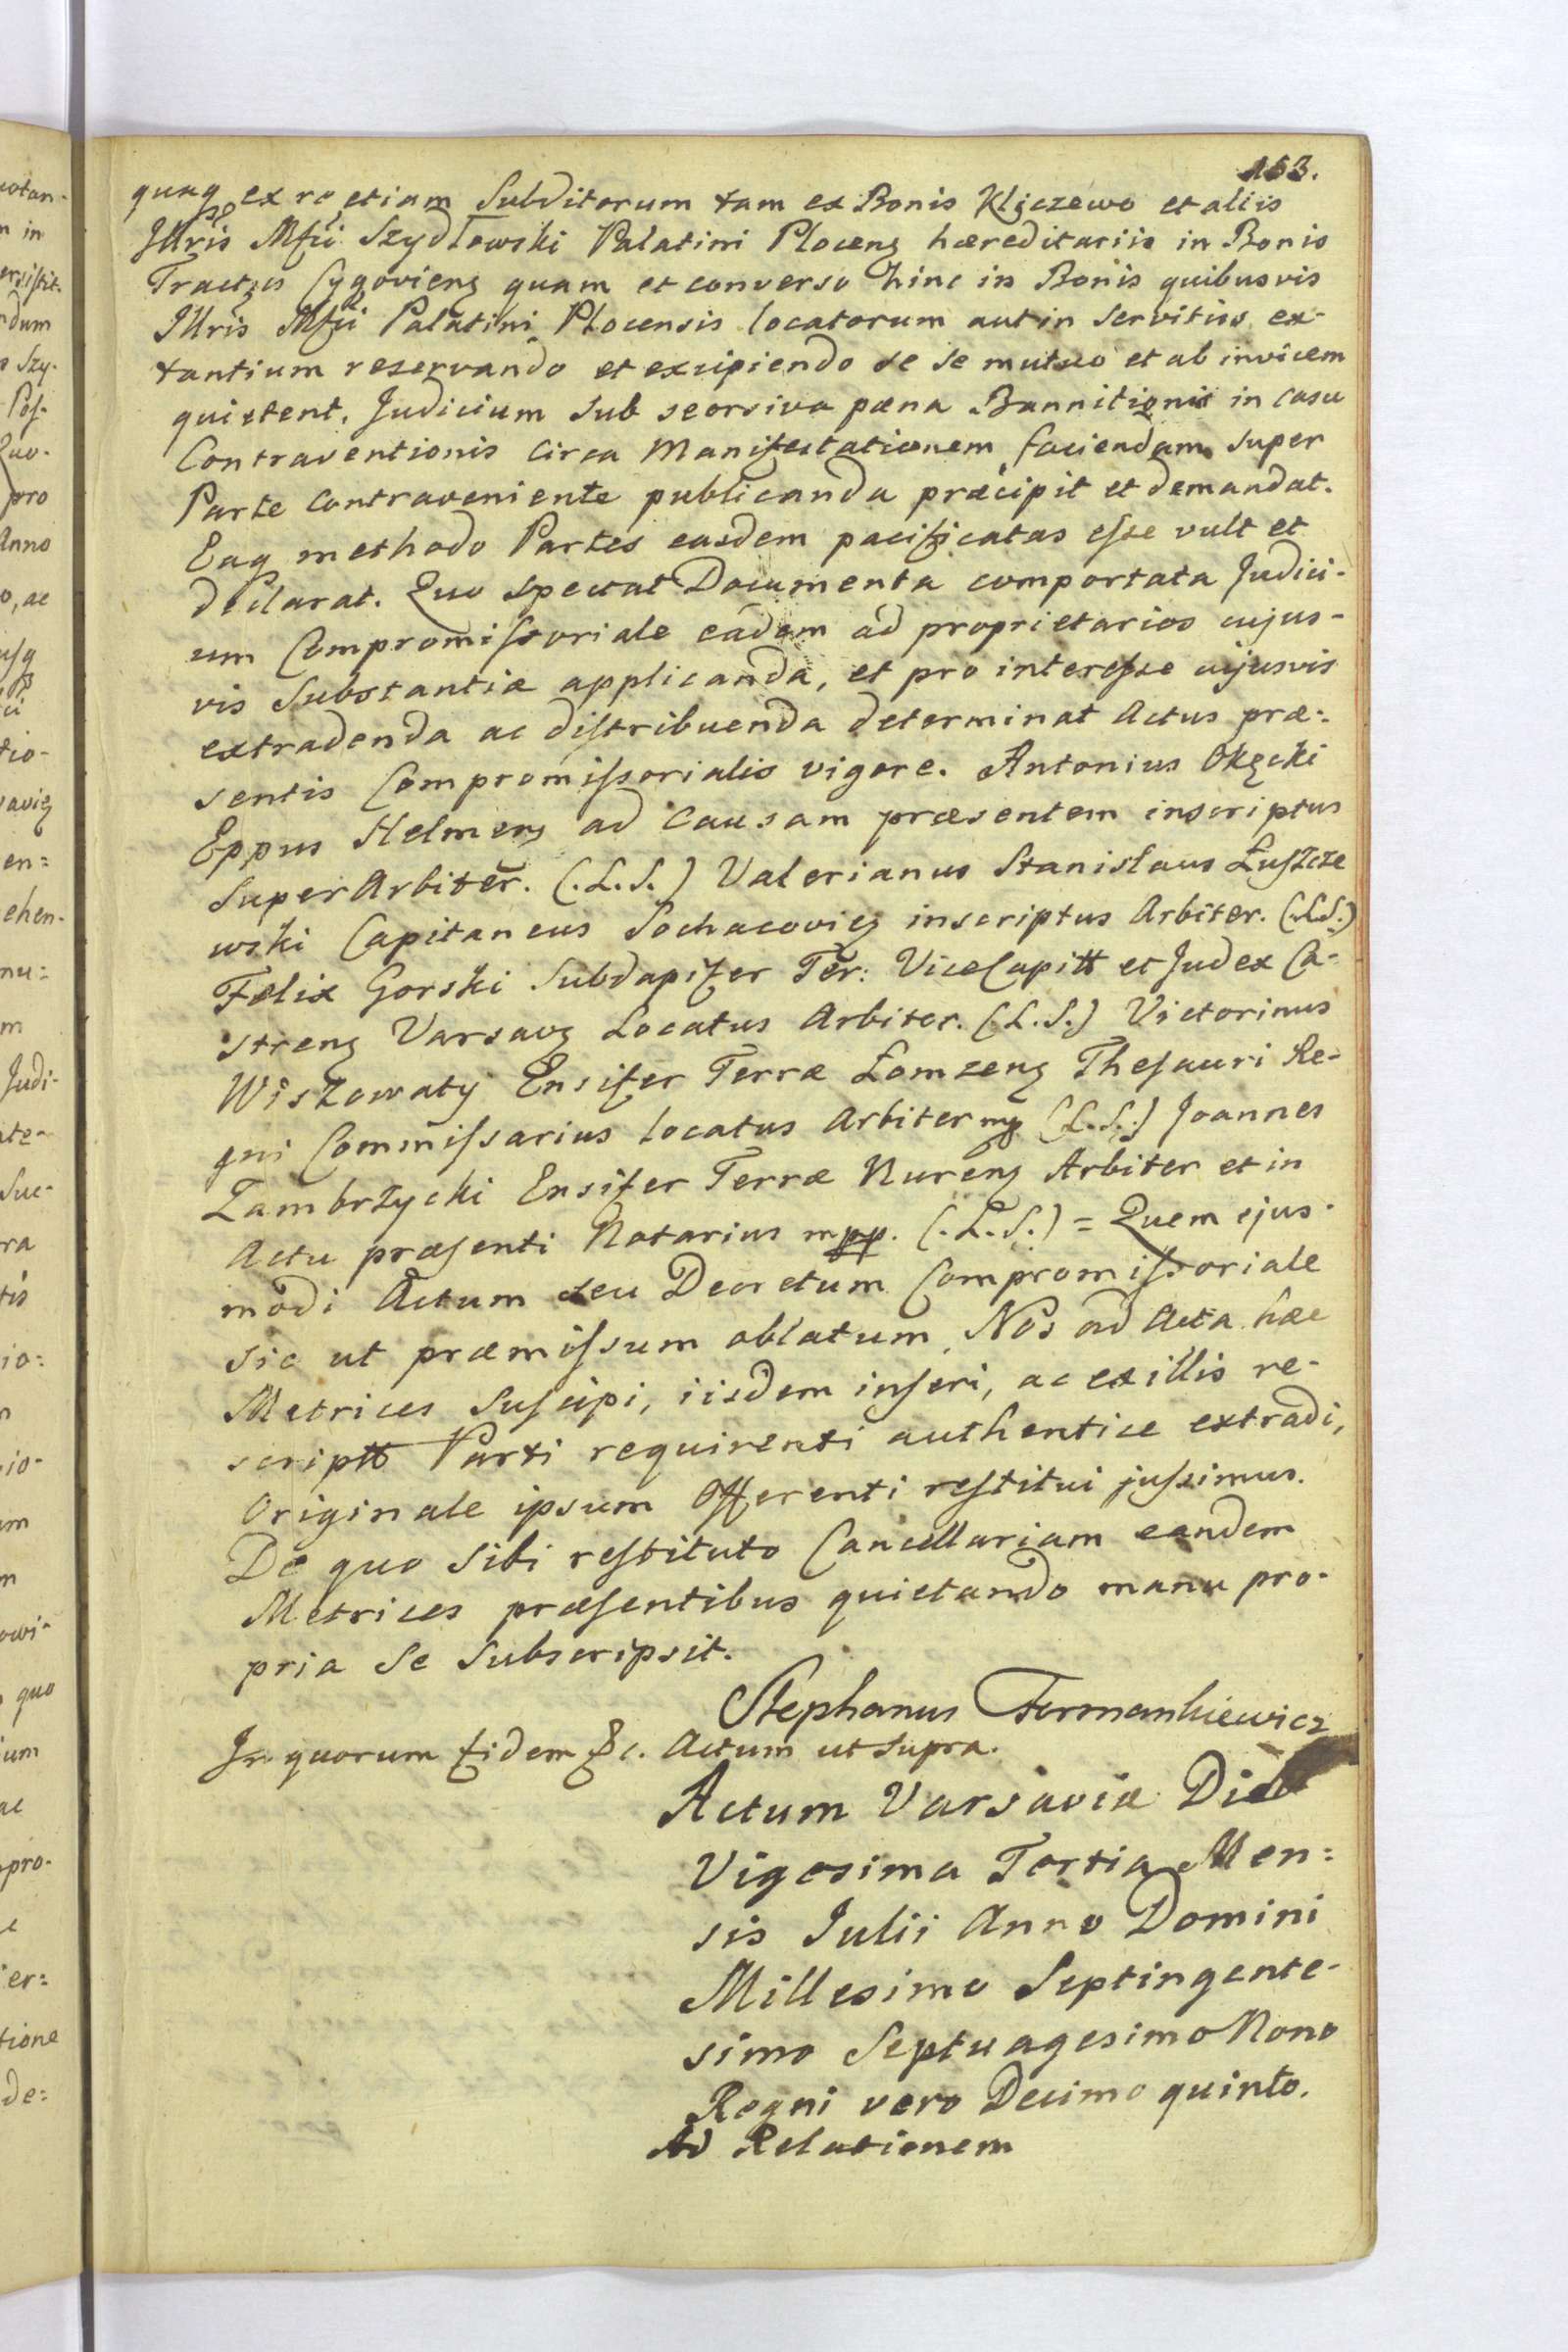 163.
qunq ex re etiam Subditorum tam ex Bonis Kliczewo et aliis
Illris Mfci Szydłowski Palatini Plocens hæreditariis in Bonis
Tractus Cygoviens quam et converso hinc in Bonis quibusvis
Illris Mfci Palatini Plocensis locatorum aut in Servitiis ex-
tantium reservando et excipiendo se se mutuo et ab invicem
quietent. Judicium Sub seorsiva pæna Bannitionis in casu
Contraventionis Circa Manifestationem faciendam super
Parte Contraveniente publicanda præcipit et demandat.
Eaq methodo Partes easdem pacificatas esse vult et
declarat. Quo spectat Documenta comportata Judici-
um Compromissoriale eadem ad proprietarios cujus-
vis Substantiæ applicanda, et pro interesse cujusvis
extradenda ac distribuenda determinat Actus præ-
sentis Compromissorialis vigore. Antonius Okęcki
Eppus Helmens ad Causam præsentem inscriptus
SuperArbiter. (.L.S.) Valerianus Stanislaus Łuszcze
wski Capitaneus Sochacovies inscriptus Arbiter. (.L.S.)
Fælix Gorski Subdapifer Ter: ViceCapitt et Judex Ca-
strens Varsavs Locatus Arbiter. (L.S.) Victorinus
Wiszowaty Ensifer Terræ Łomzens Thesauri Re-
gni Commissarius locatus Arbiter mp (L.S.) Joannes
Zambrzycki Ensifer Terræ Nurens Arbiter et in
Actu præsenti Notarius mpp. (.L.S.) = Quem ejus-
modi Actum seu Decretum Compromissoriale
sic ut præmissum oblatum, Nos ad Acta hæc
Metrices Suscipi, iisdem inseri, ac ex illis re-
scriptt Parti requirenti authentice extradi,
Originale ipsum Offerenti restitui jussimus.
De quo Sibi restituto Cancellariam eandem
Metrices præsentibus quietando manu pro-
pria Se Subscripsit.
Stephanus Formankiewicz
In quorum fidem &c. Actum ut supra.
Actum Varsaviæ Die
Vigesima Tertia Men=
sis Julii Anno Domini
Millesimo Septingente-
simo Septuagesimo Nono
Regni vero Decimo quinto.
Ad Relationem